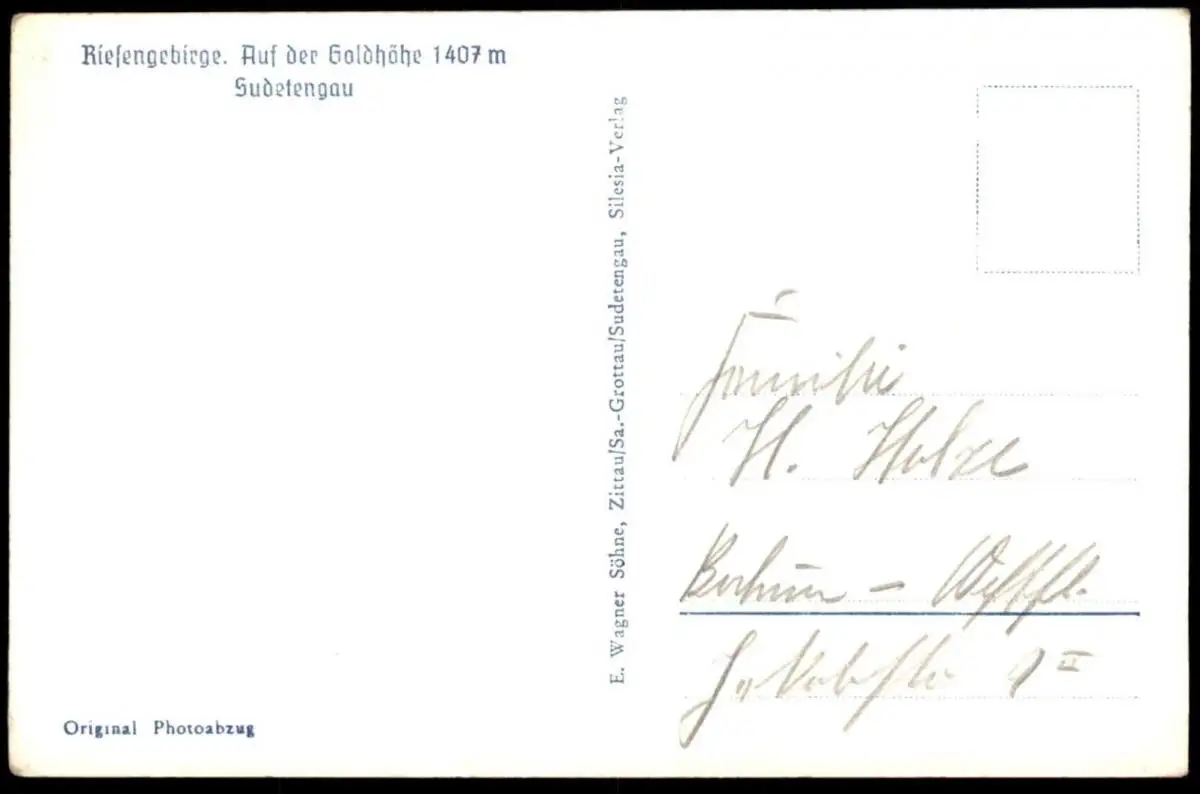 Riesengebirge. Auf der Goldhöhe 1407 m
Sudetengau
E. Wagner Söhne, Zittau/Sa.-Grottau/Sudetengau, Silesia-Verlag
Familie
H. Holze
Bochum – Westfl.
Jakobstr 9 II
Original Photoabzug